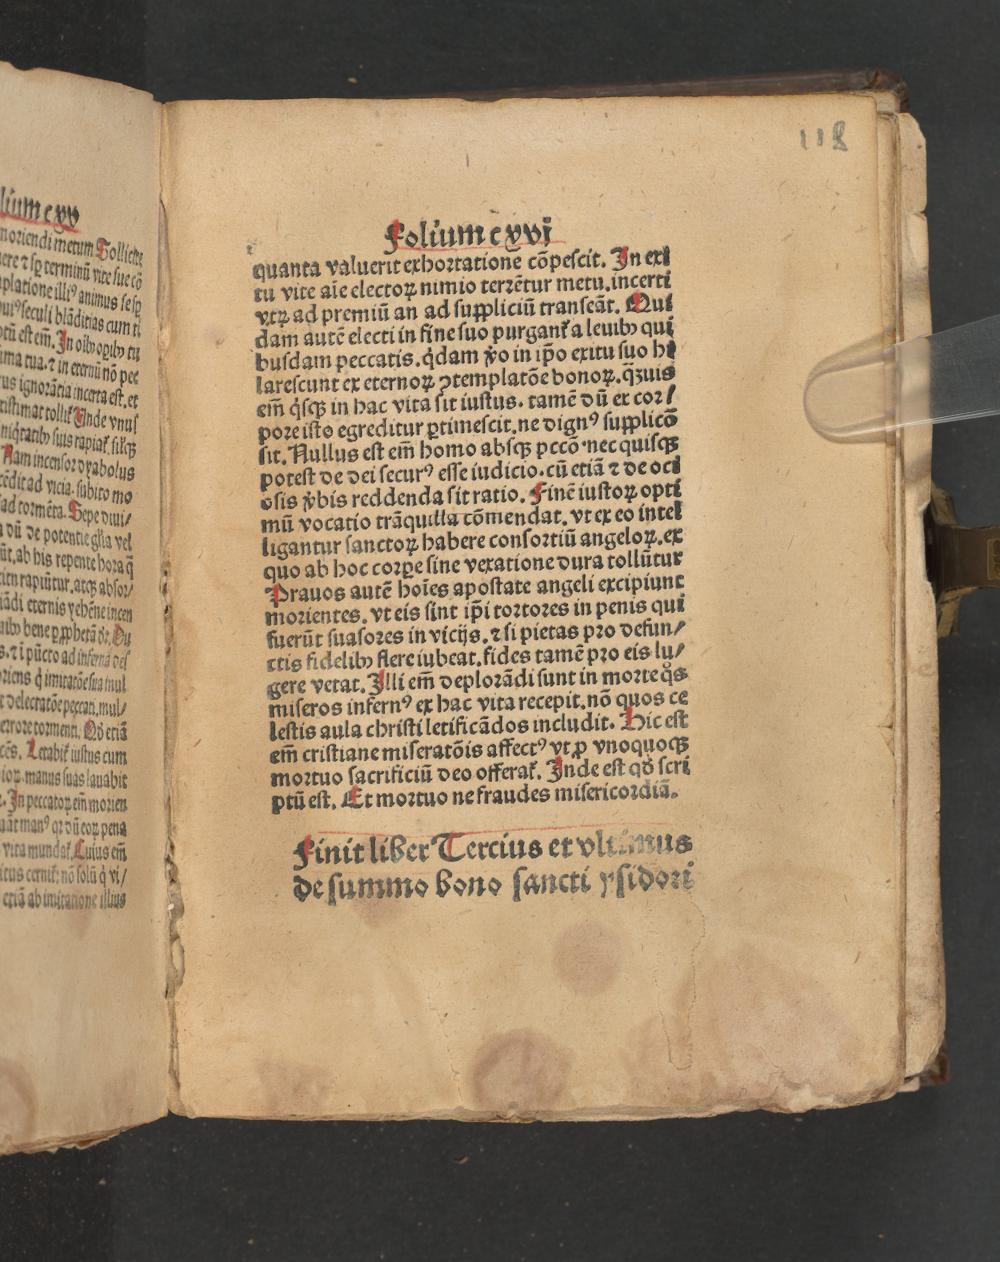 lium cxv
moriendi metum Sollicite
ere ⁊ sꝑ terminū vite sue cō
mplatione illiꝰ animus se sꝑ
huiꝰ seculi blāditias cum ti
ptū est em̄. In oīb oꝑib tu
ima tua. ⁊ in eternū nō pec
us ignorātia incerta est. et
stimat tollit᷑ Unde vnus
niq̄tatib suis rapiat᷑. sicq̄ꝫ
Nam incensor dyabolus
cēdit ad vicia. subito mo
ad tormēta. Sepe diui⸗
a dū de potentie gl̄ia vel
ūt. ab his repente hora q̄
rapiūtur. atqꝫ absor⸗
iādi eternis vehēne incen
uib bene ꝑ ꝓphetā dr̄. Du
s. ⁊ i pūcto ad inferna des
oriens q̇ imitatōe sua mul
t delectatōe peccati. mul⸗
errore tormenti. Qd̄ etiā
cēs. Letabit᷑ iustus cum
ioꝝ. manus suas lauabit
. In peccatoꝝ em̄ morien
uāt manꝰ qꝛ dū eoꝝ pena
vita mundat᷑. Cuius em̄
itus cernit᷑: nō solū q̇ vi⸗
etiā ab imitatione illius
118
Folium cxvi
quanta valuerit exhortatione cōpescit. In exi
tu vite aīe electoꝝ nimio terrētur metu. incerti
vtꝝ ad premiū an ad suppliciū transeāt. Qui
dam autē electi in fine suo purgant᷑ a leuib qui
busdam peccatis. q̇dam v̊o in ip̄o exitu suo hi
larescunt ex eternoꝝ ꝯtemplatōe bonoꝝ. q̄ꝫuis
em̄ q̇sqꝫ in hac vita sit iustus. tamē dū ex cor⸗
pore isto egreditur ꝑtimescit. ne dignꝰ supplicō
sit. Nullus est em̄ homo absqꝫ pccō. nec quisqꝫ
potest de dei securꝰ esse iudicio. cū etiā ⁊ de oci
osis v̊bis reddenda sit ratio. Finē iustoꝝ opti
mū vocatio trāquilla cōmendat. vt ex eo intel
ligantur sanctoꝝ habere consortiū angeloꝝ. ex
quo ab hoc corꝑe sine vexatione dura tollūtur
Prauos autē hoīes apostate angeli excipiunt
morientes. vt eis sint ip̄i tortores in penis qui
fuerūt suasores in vicijs. ⁊ si pietas pro defun⸗
ctis fidelib flere iubeat. fides tamē pro eis lu⸗
gere vetat. Illi em̄ deplorādi sunt in morte q̊s
miseros infernꝰ ex hac vita recepit. nō quos ce
lestis aula christi letificādos includit. Hic est
em̄ cristiane miseratōis affectꝰ vt ꝓ vnoquoqꝫ
mortuo sacrificiū deo offerat᷑. Inde est qd̄ scri
ptū est. Et mortuo ne fraudes misericordiā.
Finit liber Tercius et vltimus
de summo bono sancti ysidori